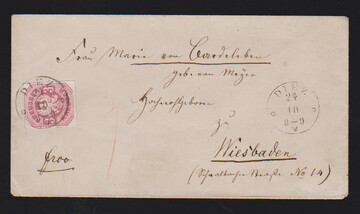 Frau Marie von Bardeleben
geb. von Meyer
Hochwohlgeboren
zu
Wiesbaden
(Schwalbacher Straße No 14)
frco
DIEZ
24
10
8-9